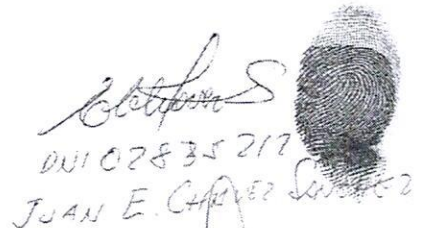 DNI 02835217
JUAN E. CHAVEZ SANCHEZ